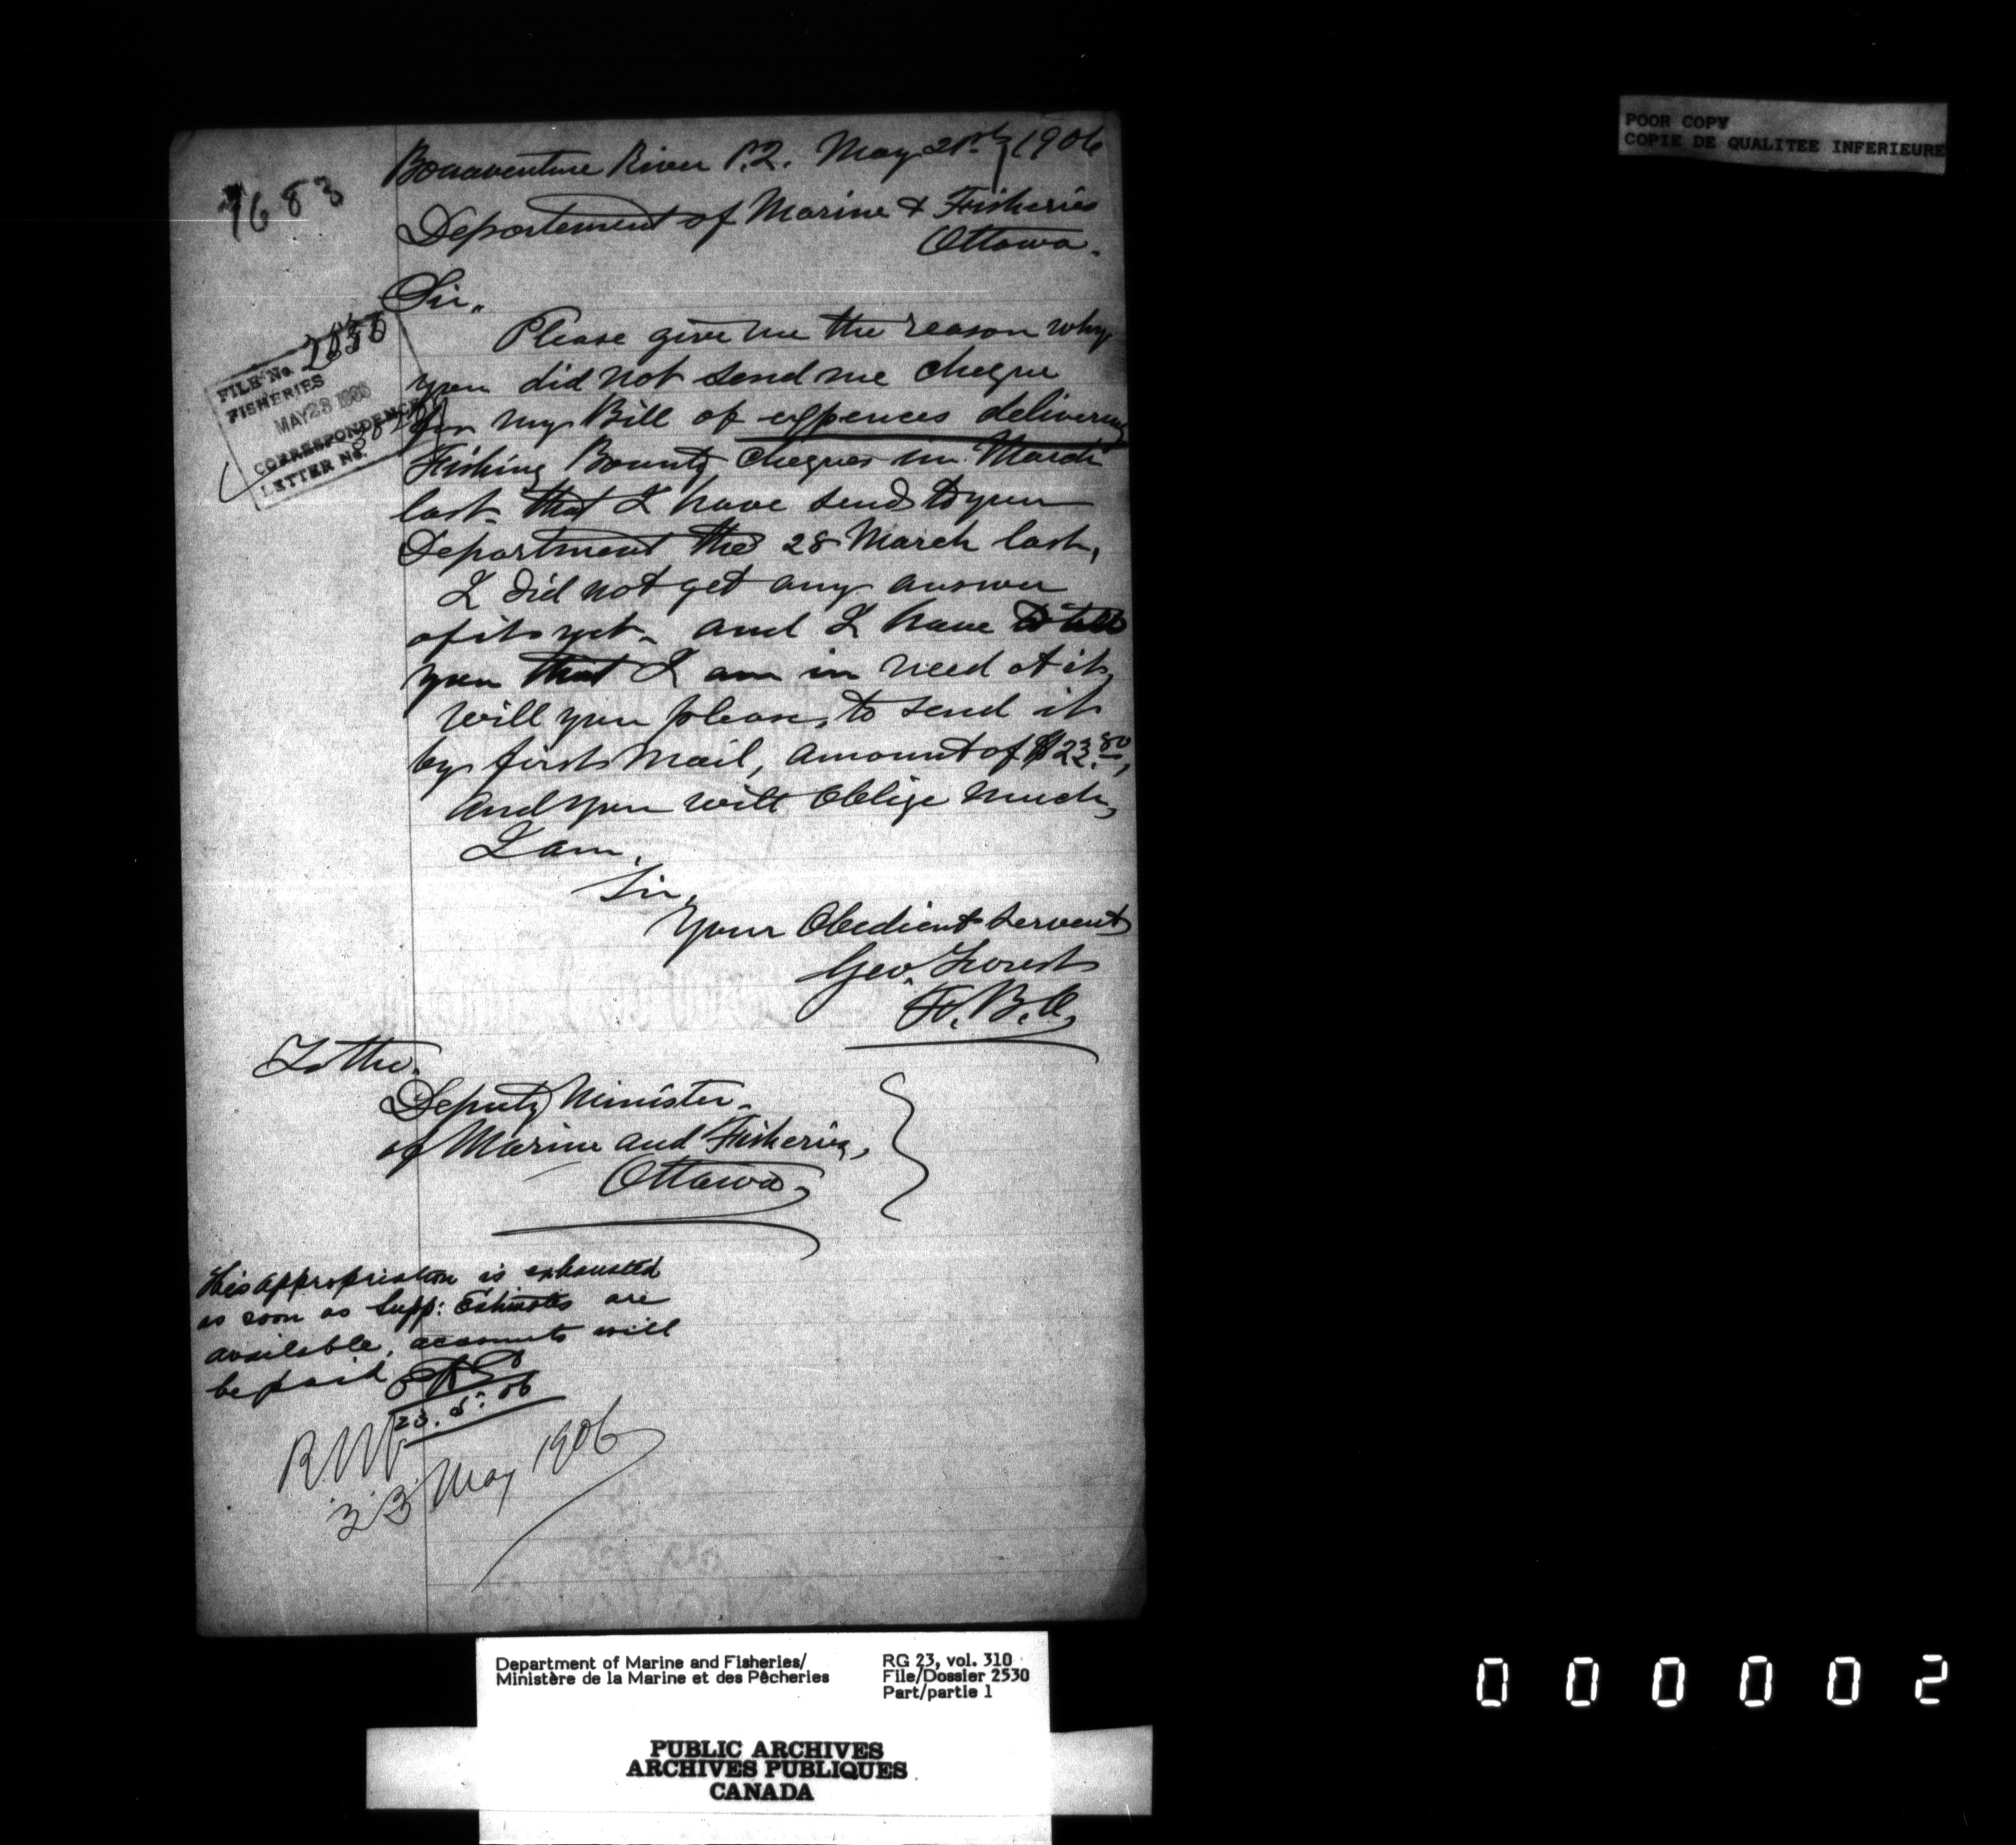 Bonaventure River P.Q. May 21st 1906
7683
Departement of Marine & Fisheries
Ottawa.
Sir,
Please give me the reason why
you did not send me cheque
for my Bill of expences delivering
Fishing Bounty cheques in March
last that I have send to your
Department the 28 March last,
I did not get any answer
of it yet. and I have to tell
you that I am in need of it,
will you please, to send it
by first Mail, amount of $23.80,
and you will oblige much,
I am,
Sir,
Your Obedient Servent
Geo. Forest
F.B.O,
FILE No
FISHERIES
MAY 23 1906
CORRESPONDENCE
LETTER No.
To the.
Deputy Minister.
of Marine and Fisheries,
Ottawa,
This appropriation is exhausted
as soon as Supp: Estimates are
available, accounts will
be paid
23. 5. 06
23 May 1906
POOR COPY
COPIE DE QUALITEE INFERIEURE
Department of Marine and Fisheries/
Ministère de la Marine et des Pêcheries
RG 23, vol. 310
File/Dossier 2530
Part/partie 1
PUBLIC ARCHIVES
ARCHIVES PUBLIQUES
CANADA
000002